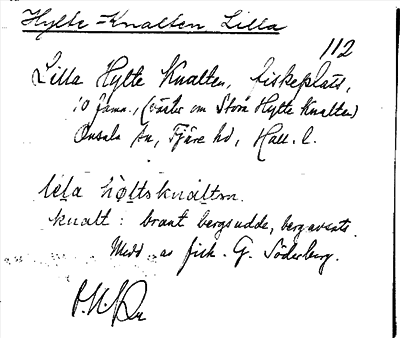 Hylte-Knalten, Lilla
112
Lilla Hylte Knalten, fiskeplats,
10 famn., (väster om Stora Hylte Knalten)
Onsala sn, Fjäre hd, Hall. l.
lela höltsknaltn.
knalt: brant bergsudde, bergavsats.
Medd. av fisk. G. Söderberg.